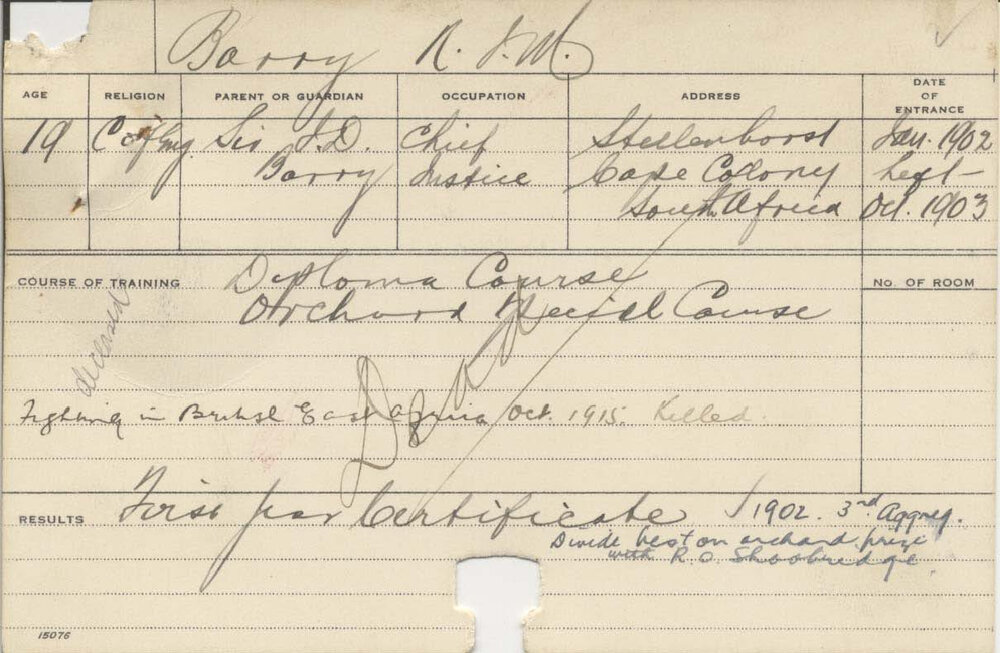 Barry R. J. M.
AGE RELIGION PARENT OR GUARDIAN OCCUPATION ADDRESS DATE OF ENTRANCE
19 C of Eng. Sir J.D. Chief Stellenborst Jan. 1902
Barry Justice Cape Colony Left -
South Africa Oct. 1903
COURSE OF TRAINING Diploma Course No. OF ROOM
Orchard Special Course
deceased
Dead
Fighting in British East Africa Oct. 1915. Killed.
RESULTS First year Certificate 1902. 3rd Aggreg.
Divide best on orchard prize
with R. O. Shoobridge.
15076